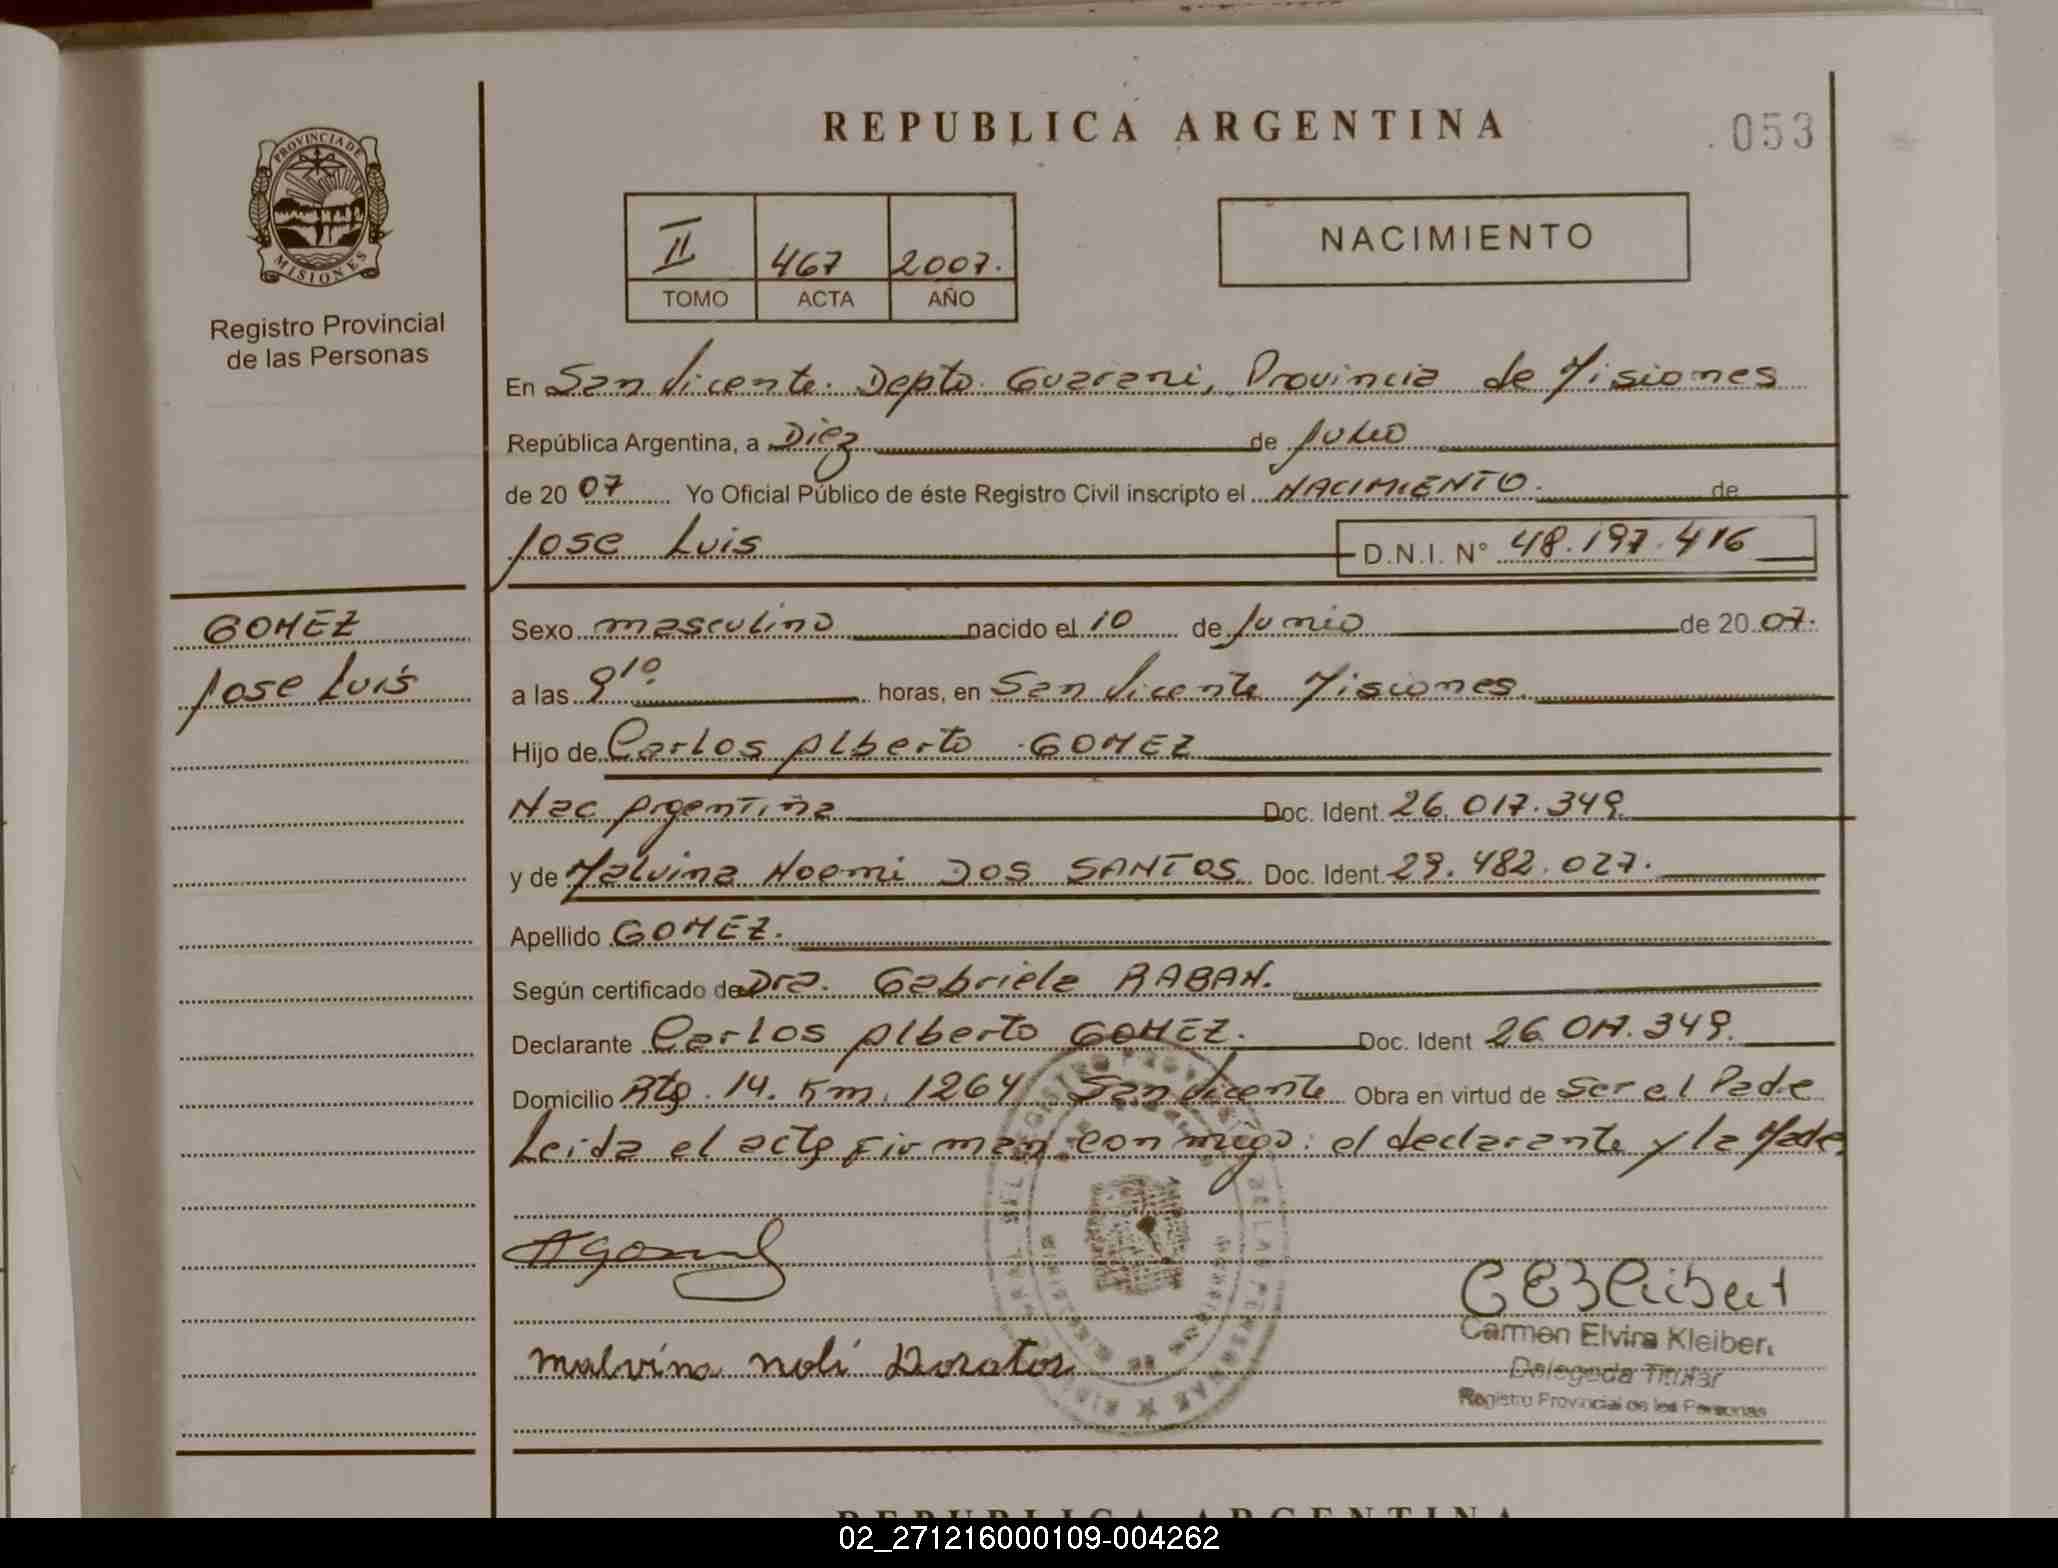 REPUBLICA ARGENTINA
.053
PROVINCIA DE
MISIONES
Registro Provincial
de las Personas
II 467 2007.
TOMO ACTA AÑO
NACIMIENTO
En San Vicente. Depto. Guarani, Provincia de Misiones
República Argentina, a Diez de Julio
de 20 07 Yo Oficial Público de éste Registro Civil inscripto el NACIMIENTO. de
Jose Luis D.N.I. N° 48.197.416
GOMEZ
Jose Luis
Sexo masculino nacido el 10 de Junio de 20 07.
a las 9 10. horas, en San Vicente Misiones.
Hijo de Carlos Alberto GOMEZ
Nac Argentina Doc. Ident. 26.017.349.
y de Malvina Noemi DOS SANTOS. Doc. Ident. 29.482.027.
Apellido GOMEZ.
Según certificado de Dra. Gabriela RABAN.
Declarante Carlos Alberto GOMEZ. Doc. Ident 26.017.349.
Domicilio Rta. 14. Km. 1264 San Vicente Obra en virtud de Ser el Padre
Leida el acta firman conmigo: el declarante y la Madre.
Carmen Elvira Kleiber.
Delegada Titular
Registro Provincial de las Personas
REPUBLICA ARGENTINA
02_271216000109-004262